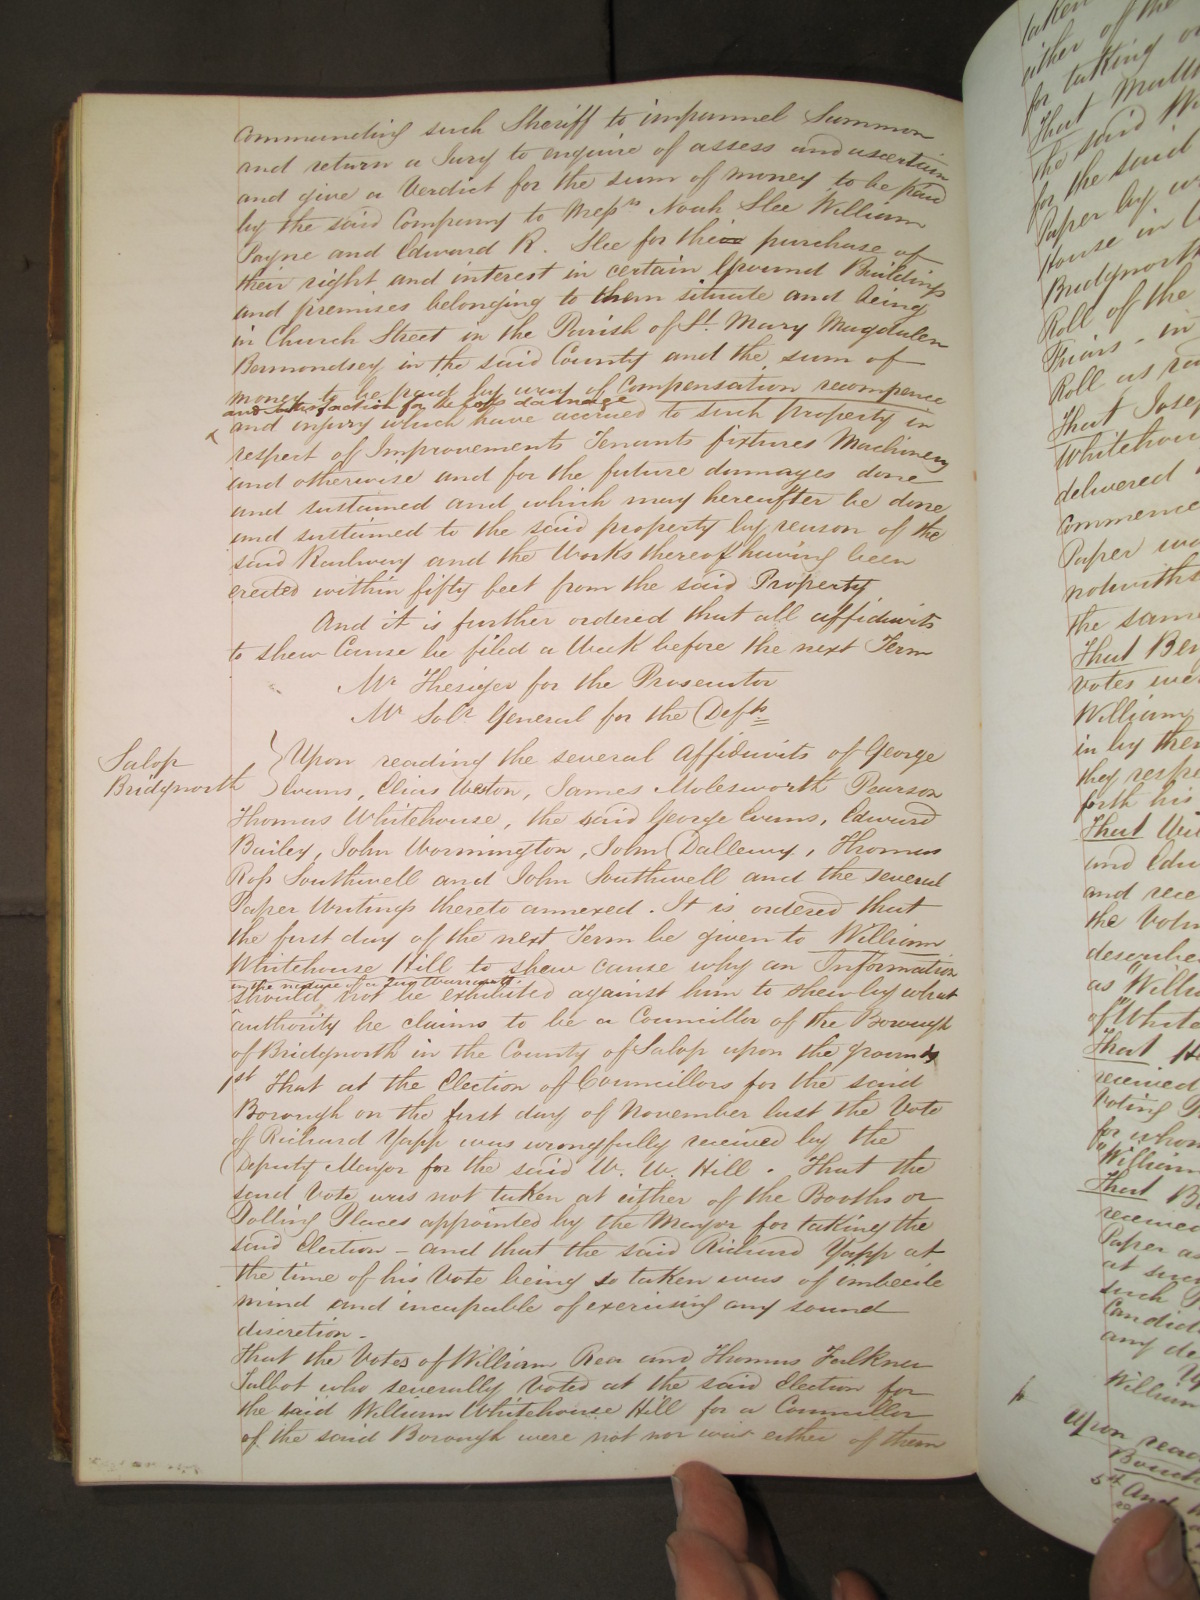 commanding such Sheriff to impannel Summon
and return a Jury to enquire of assess and ascertain
and give a Verdict for the sum of money to be paid
by the said Company to Messrs Noah Slee William
Payne and Edward R. Slee for the purchase of
their right and interest in certain Ground Buildings
and premises belonging to them situate and being
in Church Street in the Parish of St. Mary Magdalen
Bermondsey in the said County and the sum of
money to be paid by way of Compensation recompence
and satisfaction for the damage
and injury which have accrued to such property in
respect of Improvements Tenants fixtures Machinery
and otherwise and for the future damages done
and sustained and which may hereafter be done
and sustained to the said property by reason of the
said Railway and the Works thereof having been
erected within fifty feet from the said Property
And it is further ordered that all affidavits
to shew Cause be filed a Week before the next Term
Mr Thesiger for the Prosecutor
Mr Solr General for the Defts
Salop
Bridgnorth
Upon reading the several affidavits of George
Evans, Elias Weston, James Molesworth Pearson
Thomas Whitehouse, the said George Evans, Edward
Bailey, John Wormington, John Dalleway, Thomas
Ross Southwell and John Southwell and the several
Paper Writings thereto annexed. It is ordered that
the first day of the next Term be given to William
Whitehouse Hill to shew cause why an Information
in the nature of a Quo Warranto
should not be exhibited against him to shew by what
authority he claims to be a Councillor of the Borough
of Bridgnorth in the County of Salop upon the grounds
1st That at the Election of Councillors for the said
Borough on the first day of November last the Vote
of Richard Yapp was wrongfully received by the
Deputy Mayor for the said W. W. Hill. That the
said Vote was not taken at either of the Booths or
Polling Places appointed by the Mayor for taking the
said Election - and that the said Richard Yapp at
the time of his Vote being so taken was of imbecile
mind and incapable of exercising any sound
discretion -
That the Votes of William Rea and Thomas Falkner
Talbot who severally Voted at the said Election for
the said William Whitehouse Hill for a Councillor
of the said Borough were not nor was either of them
taken
either of the
for taking
That
the said
for the said
Paper by
House in
Bridgnorth
Roll of the
Friars - in
Roll as
That
Whitehouse
delivered
Commence
Paper
notwiths
the same
That Ben
Votes were
William
in by them
they respe
forth his
That
and Edw
and rece
the Vote
describe
as "Willi
of "White
That
received
Voting
for whom
William
That
received
Paper as
at such
such
Candid
any de
William
Upon read